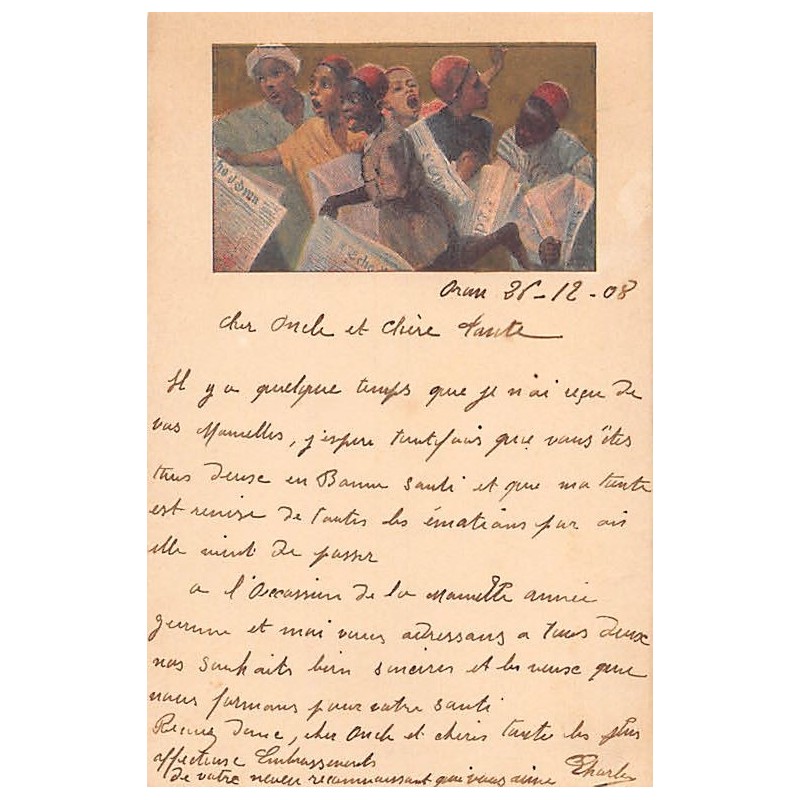 Echo d'Oran
L'Echo
Oran 26-12-08
Cher Oncle et Chère Tante
Il y a quelque temps que je n'ai reçu de
vos Nouvelles, j'espère toutefois que vous êtes
tous deux en Bonne santé et que ma tante
est remise de toutes les émotions par où
elle vient de passer
a l'Occassion de la Nouvelle année
et moi vous adressons a tous deux
nos souhaits bien sincères et les veux que
nous formons pour votre santé
Recevez donc, cher Oncle et chère tante les plus
affectueuse Embrassements
de votre neveu reconnaissant qui vous aime Charles